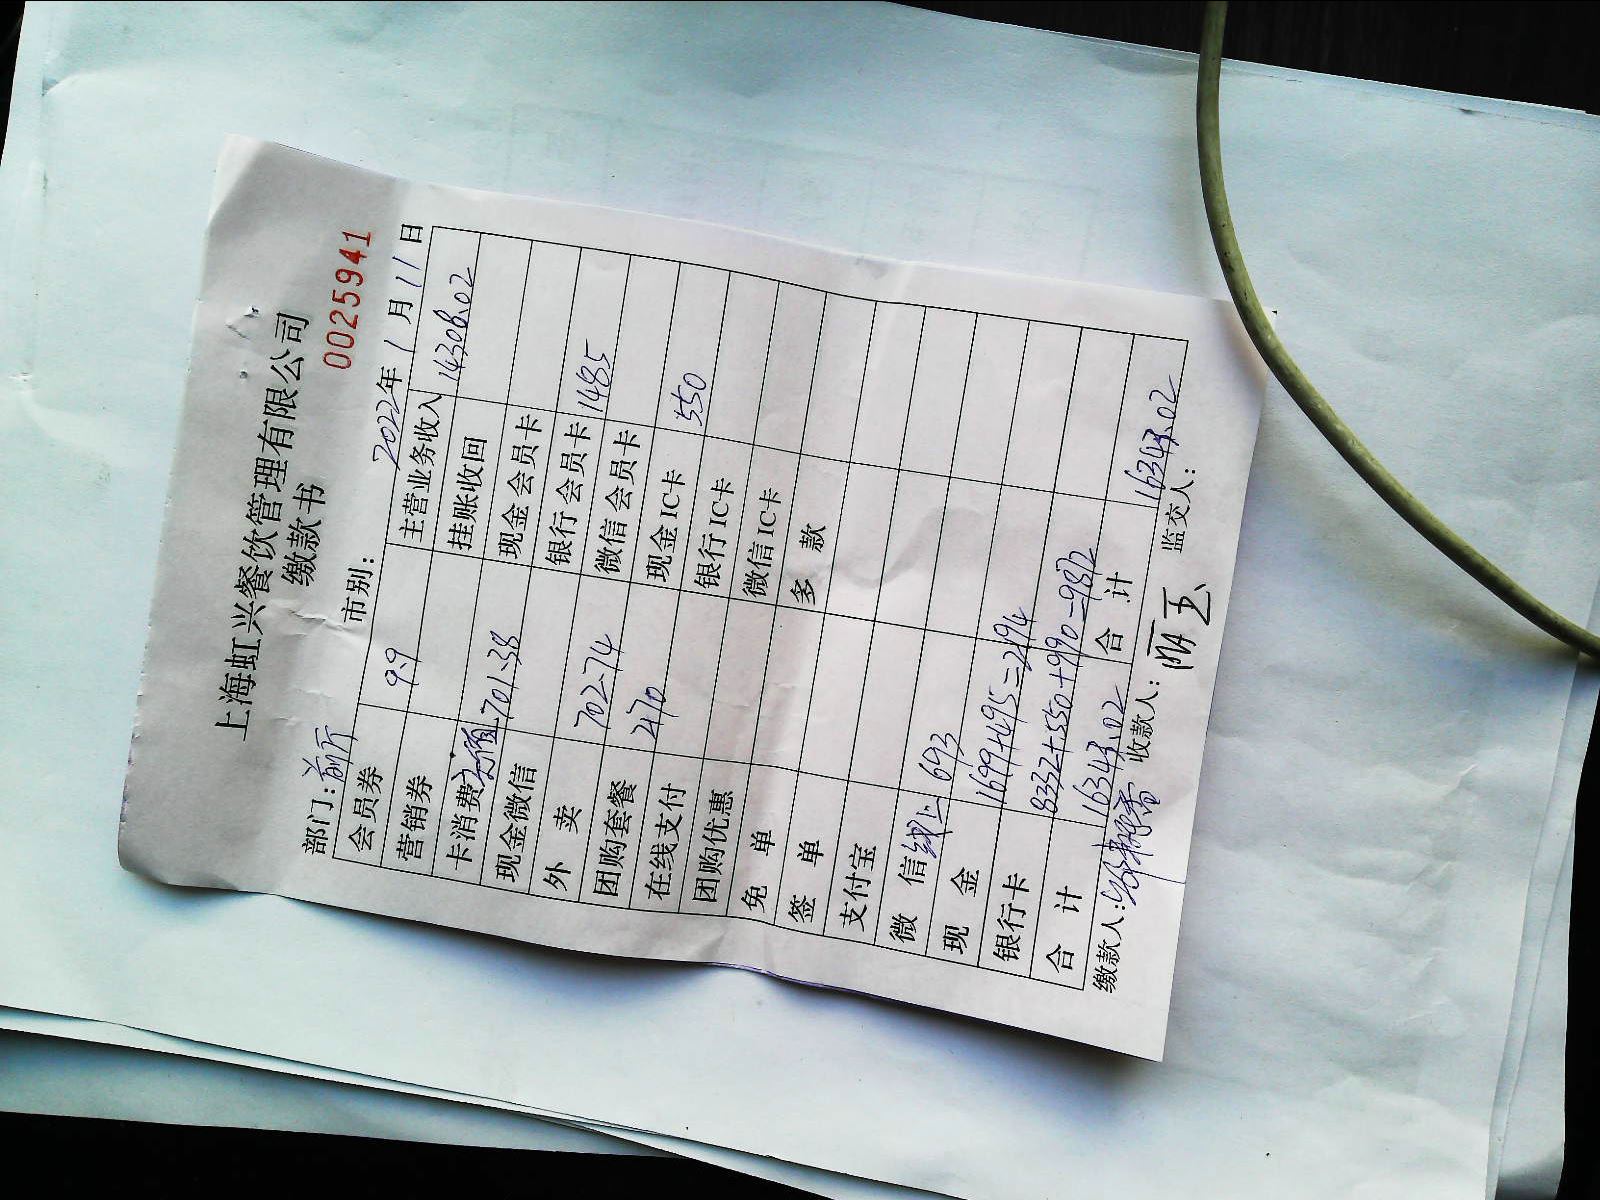 上海虹兴餐饮管理有限公司
缴款书
00025941
部门：前厅 市别： 2022年 1月 11日
会员券 9.9 主营业务收入 14308.02
营销券 挂账收回
卡消费 充值 701.38 现金会员卡
现金微信 银行会员卡 1485
外卖 702.74 微信会员卡
团购套餐 2170 现金IC卡 550
在线支付 银行IC卡
团购优惠 微信IC卡
免单 多款
签单
支付宝
微信 线上 693
现金 1699+495=2194
银行卡 8332+550+990=9872
合计 16343.02 合计 16343.02
缴款人： 收款人： 监交人：